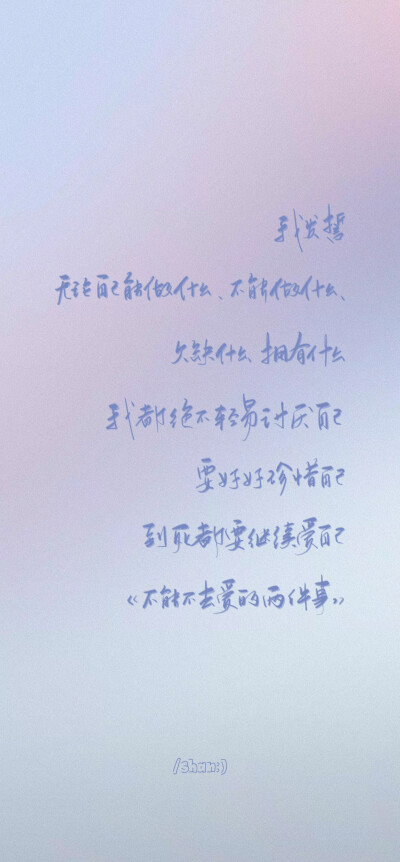 我发誓
无论自己能做什么、不能做什么、
欠缺什么、拥有什么
我都绝不轻易讨厌自己
要好好珍惜自己
到死都要继续爱自己
《不能不去爱的两件事》
/shan:)